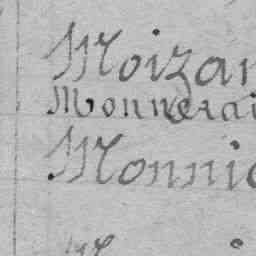 Moizan
Monnerai
Monnie